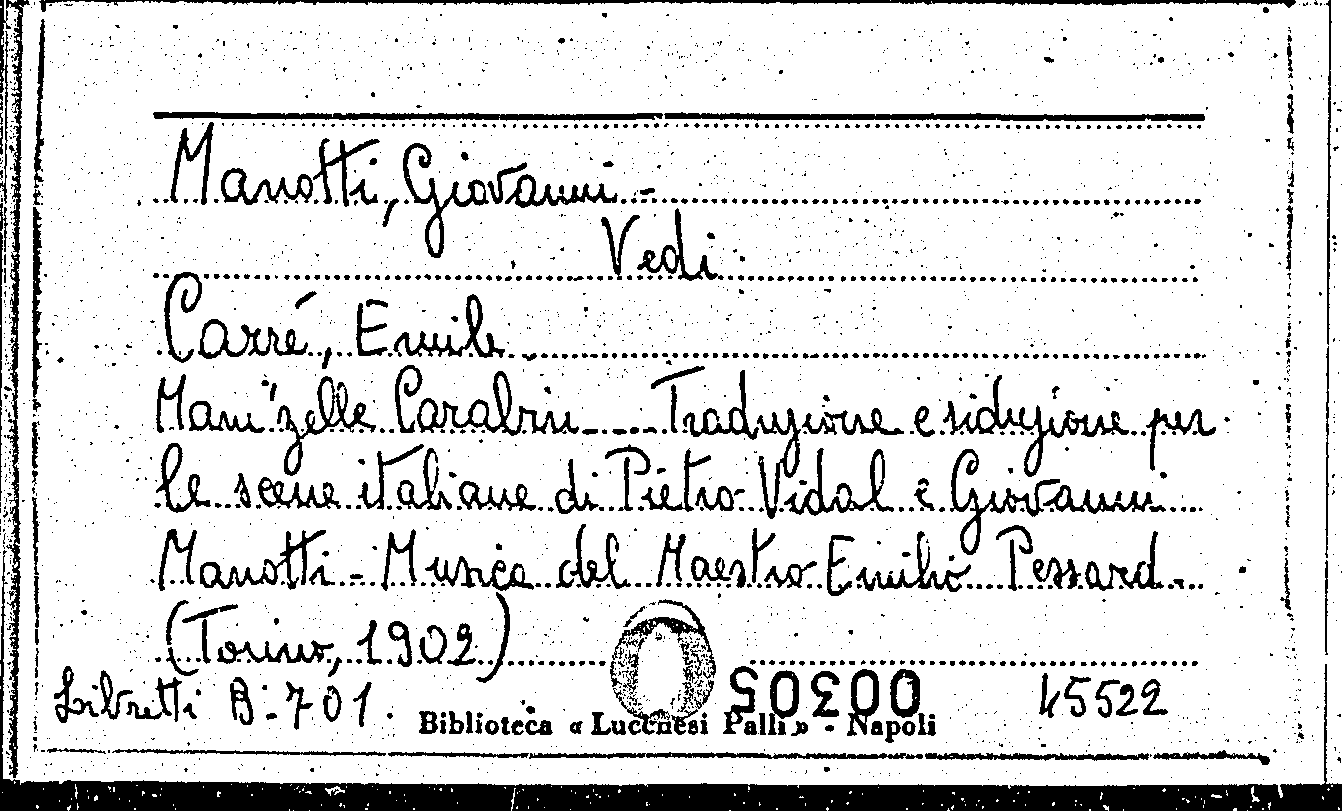 Manotti, Giovanni -
Vedi
Carré, Emile
Mam'zelle Carabin - Traduzione e riduzione per
le scene italiane di Pietro Vidal e Giovanni
Manotti - Musica del Maestro Emilio Pessard -
(Torino, 1902)
Libretti B. 701.
00305
45522
Biblioteca « Lucchesi Palli » - Napoli